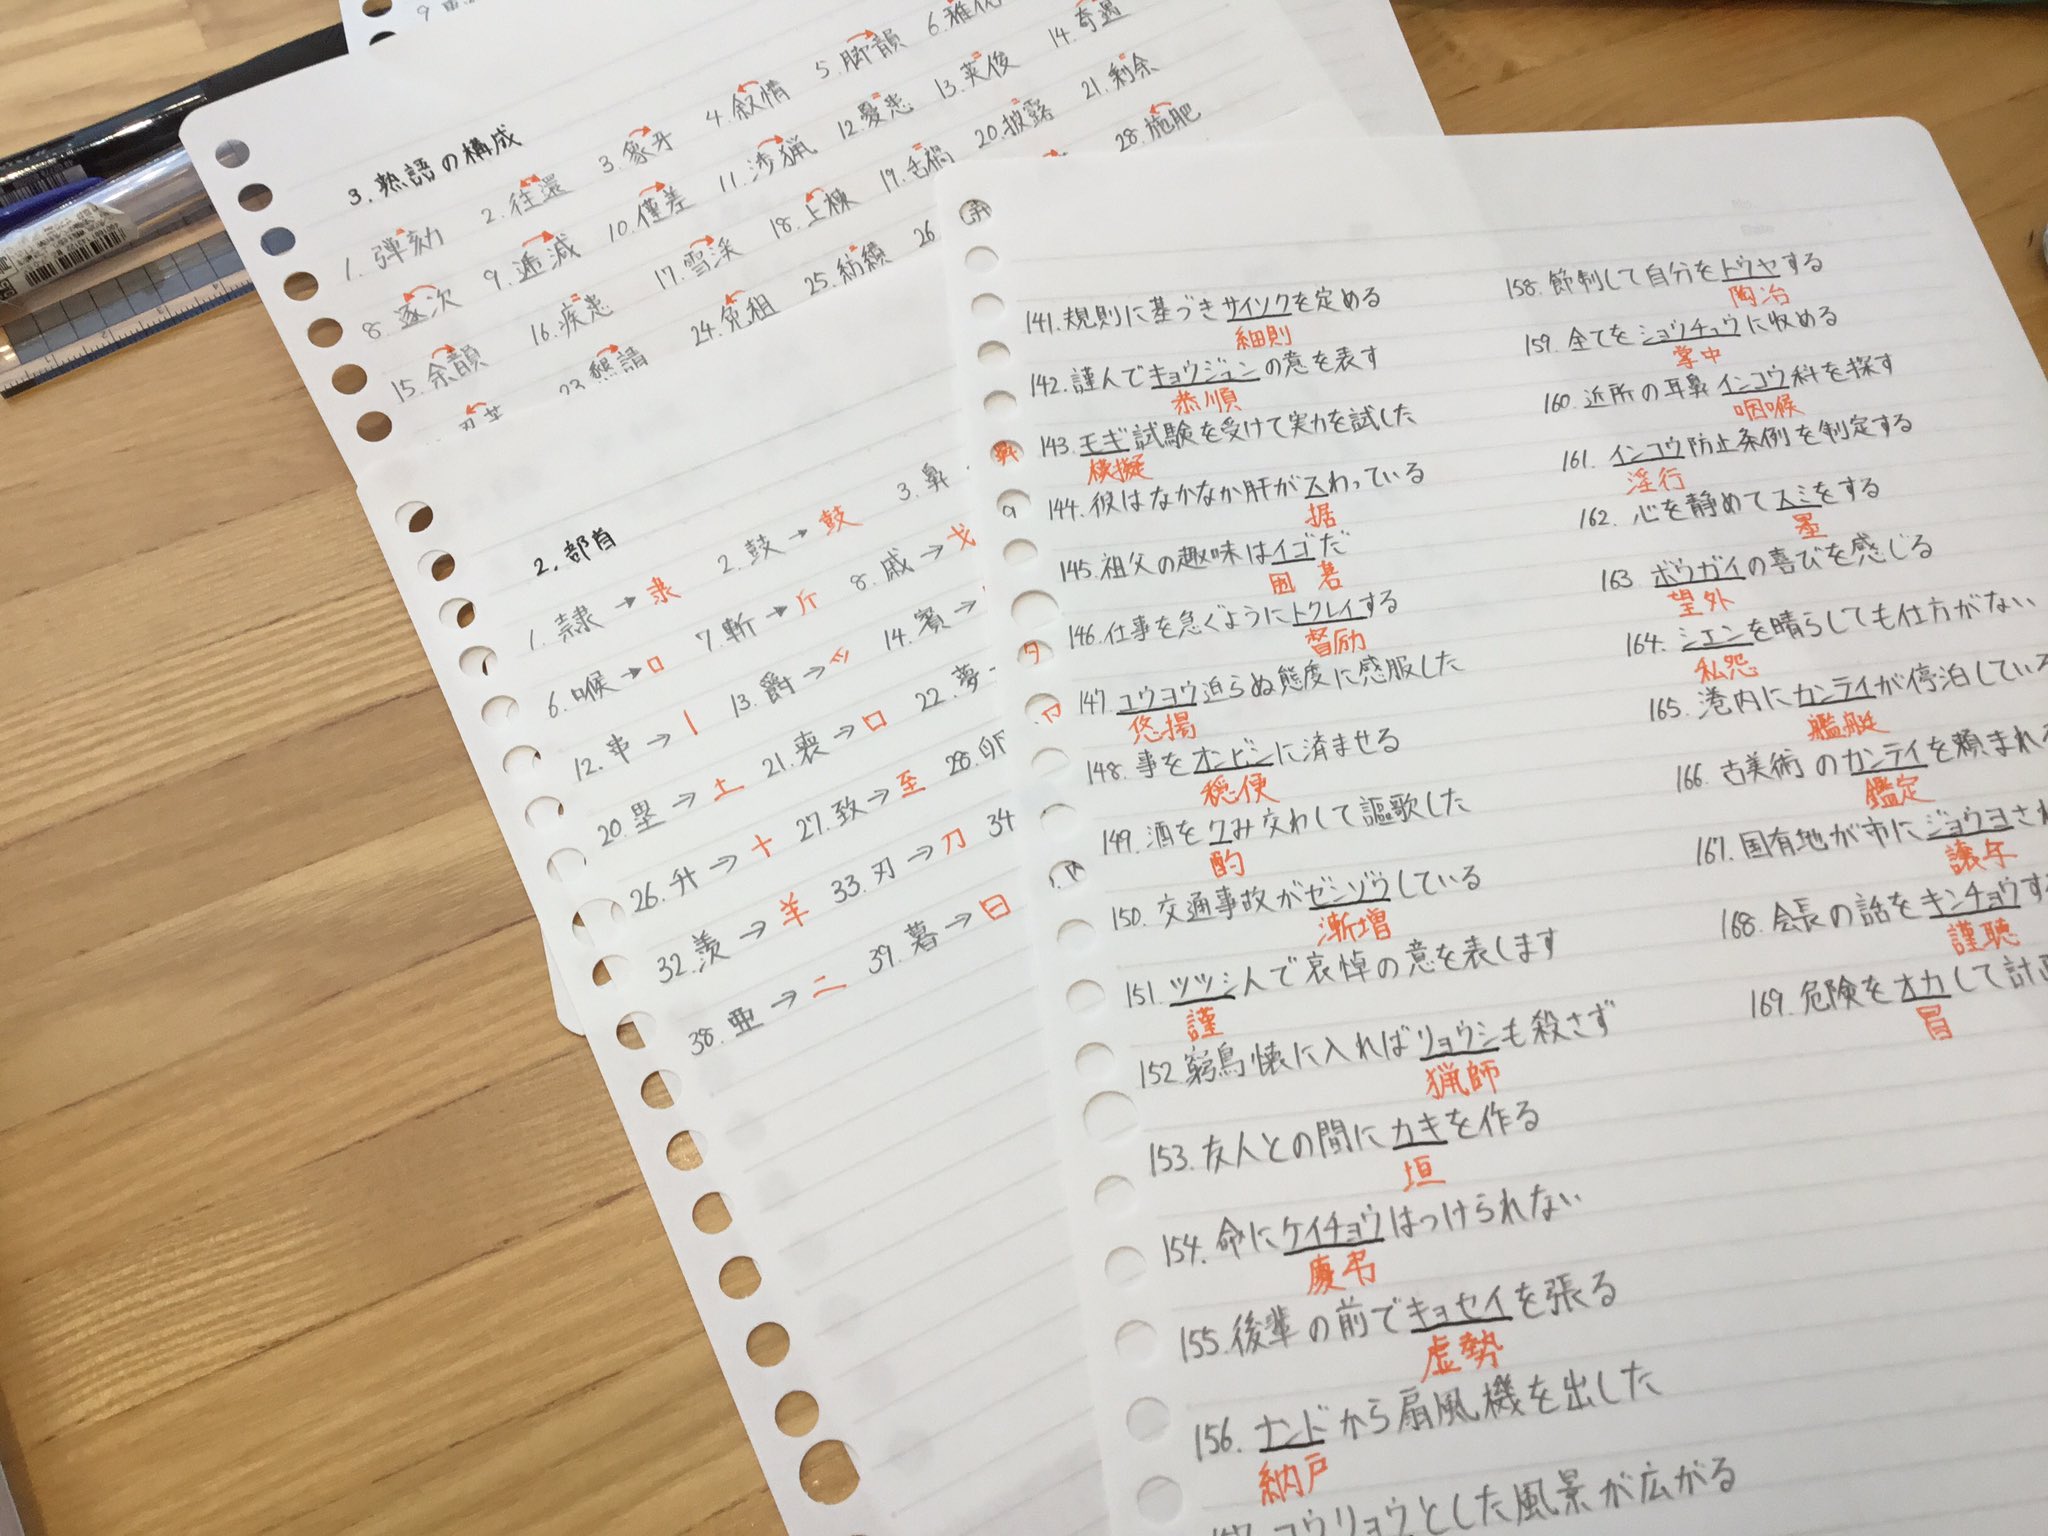 3. 熟語の構成
1. 弾劾 2. 往還 3. 象牙 4. 叙情 5. 脚韻 6.
8. 逐次 9. 逓減 10. 僅差 11. 渉猟 12. 憂患 13. 英俊 14. 奇遇
15. 余韻 16. 疾患 17. 雪渓 18. 上棟 19. 舌禍 20. 披露 21. 剰余
23. 懇請 24. 免租 25. 紡績 26. 28. 施肥
2. 部首
1. 隷→隶 2. 鼓→鼓 3. 鼻
6. 喉→口 7. 斬→斤 8. 戚→戈
12. 串→丨 13. 爵→爫 14. 賓→
20. 塁→土 21. 喪→口 22. 夢→
26. 升→十 27. 致→至 28.
32. 羨→羊 33. 刃→刀 34
38. 亜→二 39. 暮→日
141. 規則に基づきサイソクを定める
細則
142. 謹んでキョウジュンの意を表す
恭順
143. モギ試験を受けて実力を試した
模擬
144. 彼はなかなか肝がスわっている
据
145. 祖父の趣味はイゴだ
囲碁
146. 仕事を急ぐようにトクレイする
督励
147. コウヨウ迫らぬ態度に感服した
悠揚
148. 事をオンビンに済ませる
穏便
149. 酒をクみ交わして謳歌した
酌
150. 交通事故がゼンゾウしている
漸増
151. ツツシんで哀悼の意を表します
謹
152. 窮鳥懐に入ればリョウシも殺さず
猟師
153. 友人との間にカキを作る
垣
154. 命にケイチョウはつけられない
慶弔
155. 後輩の前でキョセイを張る
虚勢
156. ナンドから扇風機を出した
納戸
コウリョウとした風景が広がる
158. 節制して自分をトウヤする
陶冶
159. 全てをショウチュウに収める
掌中
160. 近所の耳鼻インコウ科を探す
咽喉
161. インコウ防止条例を制定する
淫行
162. 心を静めてスミをする
墨
163. ボウガイの喜びを感じる
望外
164. シエンを晴らしても仕方がない
私怨
165. 港内にカンテイが停泊している
艦艇
166. 古美術のカンテイを頼まれ
鑑定
167. 国有地が市にジョウヨされ
譲与
168. 会長の話をキンチョウす
謹聴
169. 危険をオカして計
冒